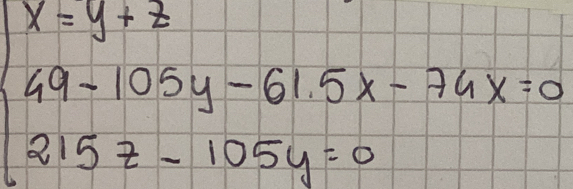 x = y + z
49 - 105y - 61.5x - 74x = 0
215z - 105y = 0